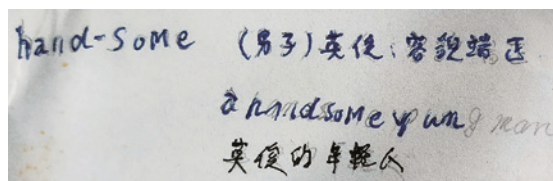 hand-some (男子)英俊;容貌端正
a handsome young man
英俊的年轻人